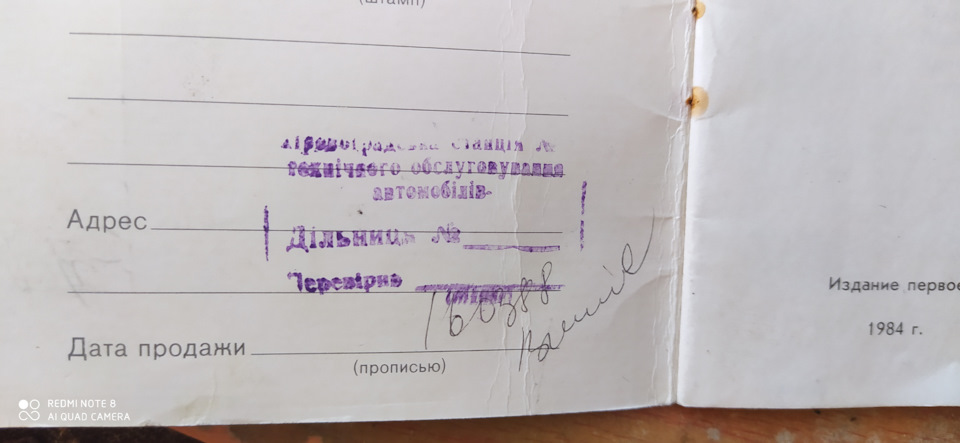 (штамп)
станція №
технічного обслуговування
автомобілів
Дільниця №
Перевірив
Адрес
160388
Дата продажи
(прописью)
Издание первое
1984 г.
REDMI NOTE 8
AI QUAD CAMERA